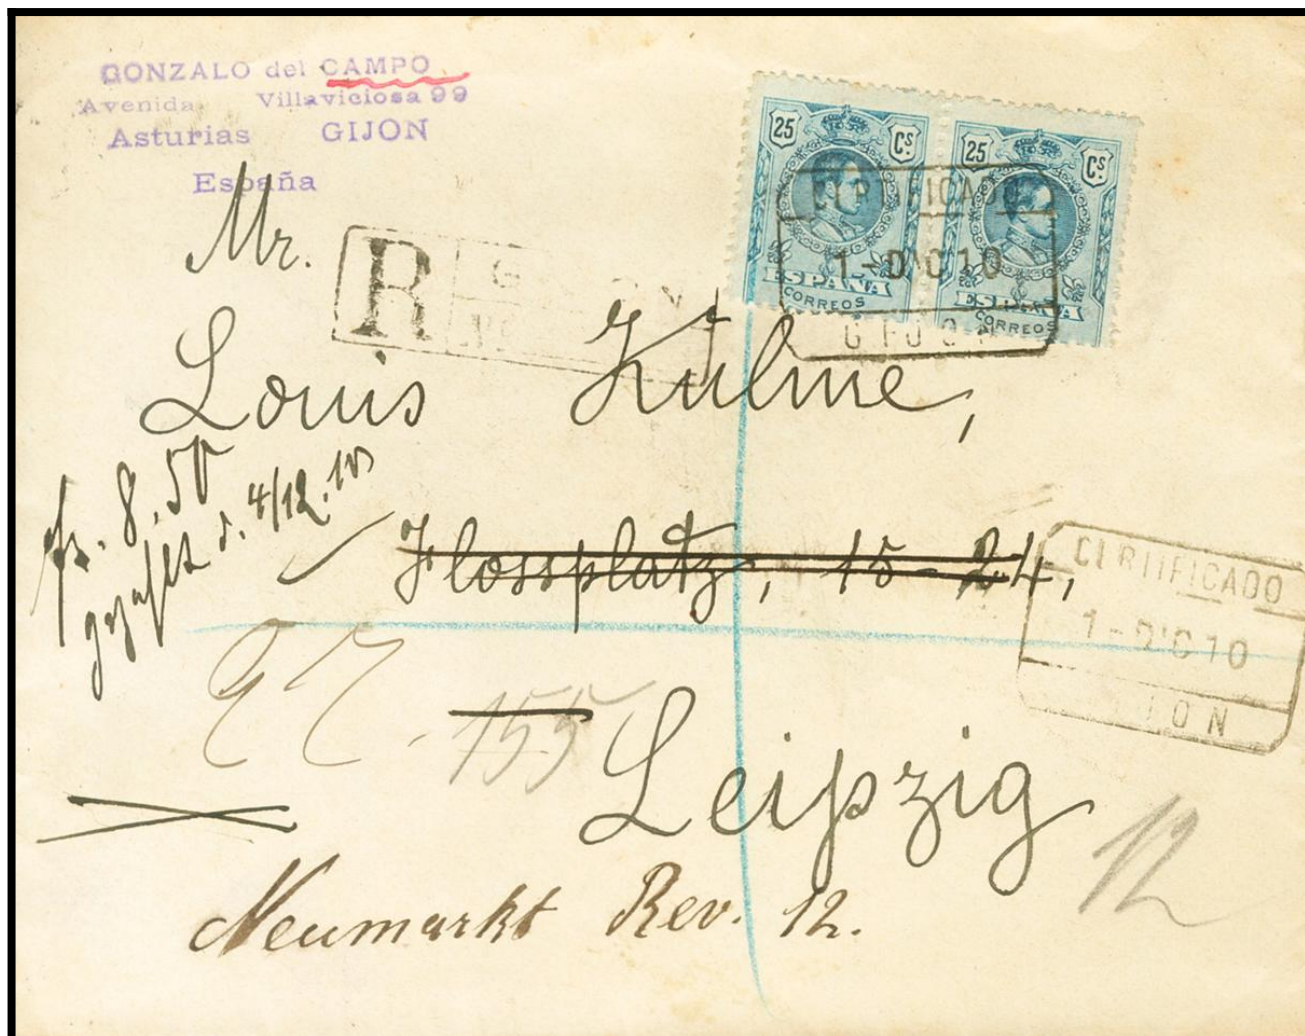 GONZALO del CAMPO
Avenida Villaviciosa 99
Asturias GIJON
España
25 Cs
ESPAÑA
CORREOS
25 Cs
ESPAÑA
CORREOS
CERTIFICADO
1-DIC10
GIJON
R
Mr.
Louis Kulme,
fr. 8.50
gezahlt d. 4/12.10
Flossplatz, 15-24,
CERTIFICADO
1-DIC10
GIJON
155
Leipzig
12
Neumarkt Rev. 12.